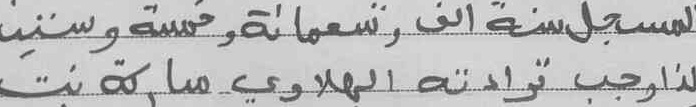 المسجل سنة الف وتسعمائة وخمسة وستين
لذا وجب قرادته الهلاوي مباركة بنت